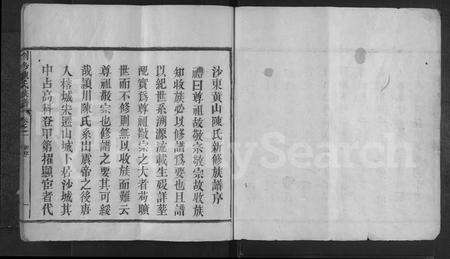 沙東黄山陳氏新修族譜序
禮曰尊祖故敬宗敬宗故收族
知收族必以修譜爲要也且譜
以紀世系溯源流載生殁詳塋
配實爲尊祖敬宗之大者苟曠
世而不修則無以收族而難云
尊祖敬宗也修譜之要其可緩
哉潁川陳氏系出虞帝之後唐
人
城
山城卜
沙城其
中占高科登甲第擢顯宦者代
MySearch